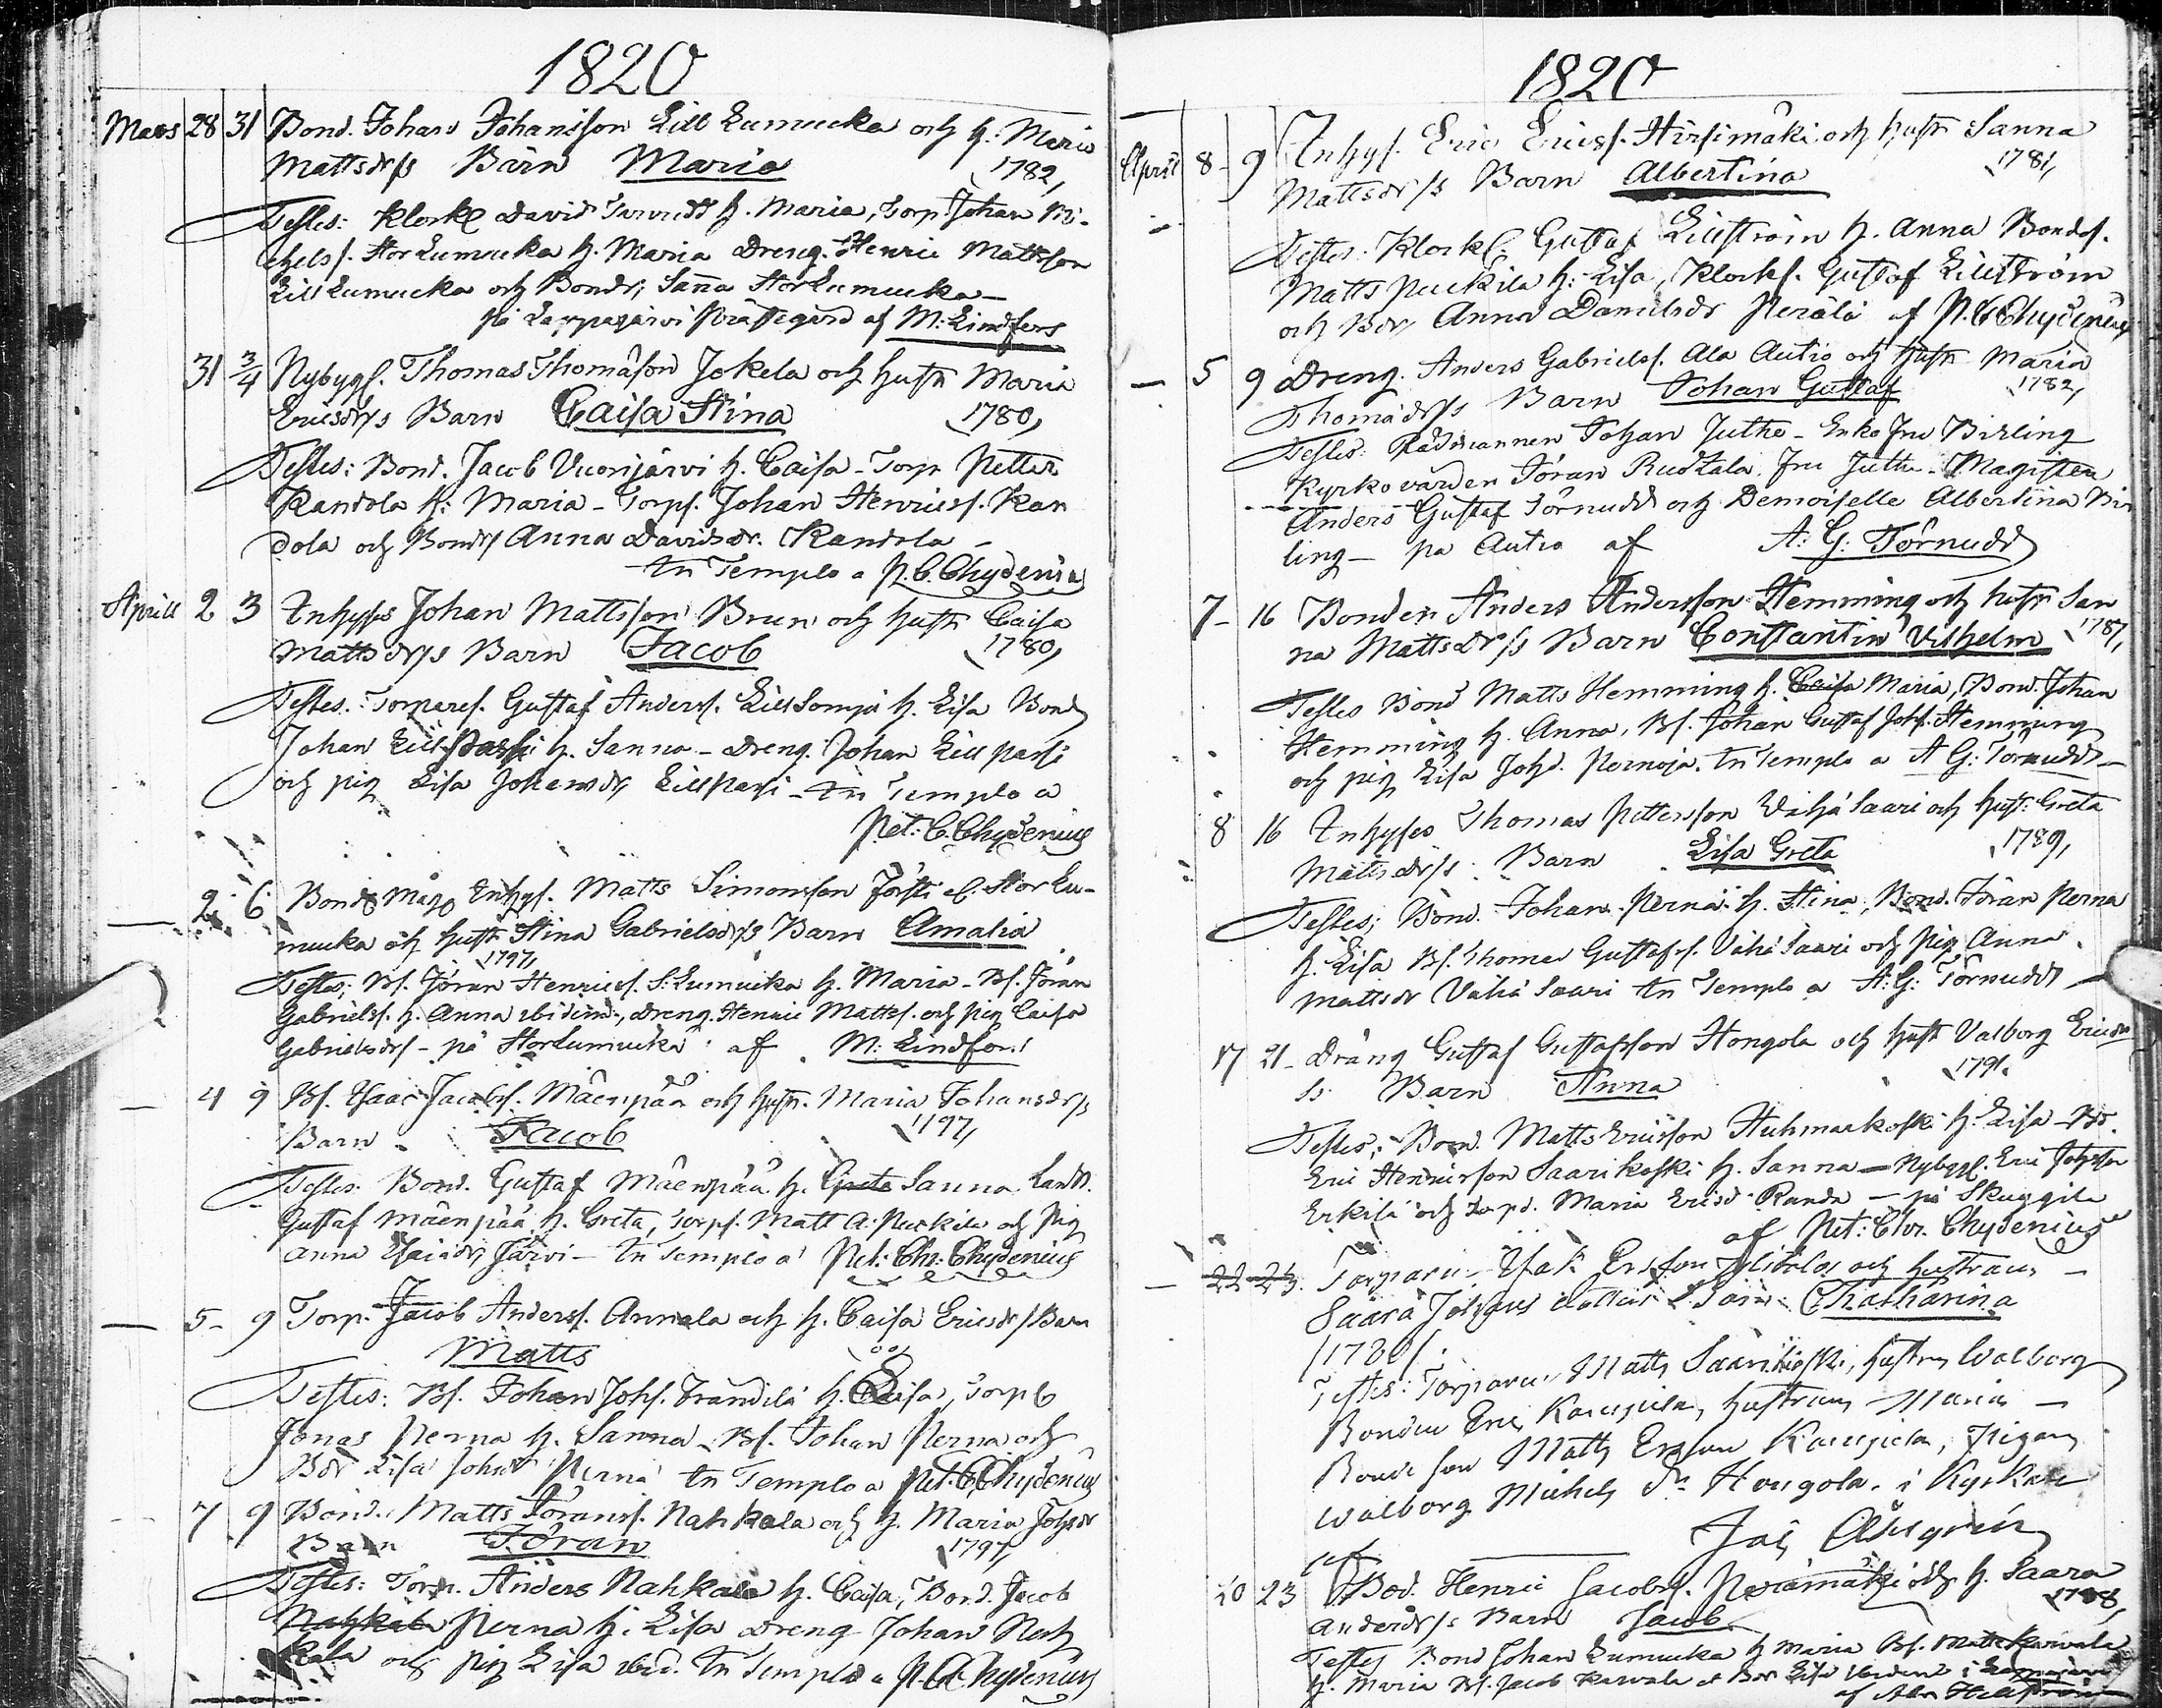 1820
Mars 28 31 Bond. Johan Johansson Lill Lumucka och h. Maria
Mattsdrs Barn Maria 1782,
Testes: Klock David Törnudd h. Maria, Torp. Johan Mi-
chelss. Storlumucka h. Maria Dreng. Henric Mattsson
Lill Lumucka och Bondr, Sanna Stor Lumucka –
på Lappajärvi Prästegård af M: Lindfors
31 3/4 Nybygg. Thomas Thomasson Jokela och hustr Maria
Ericsdrs Barn Caisa Stina 1780,
Testes: Bond. Jacob Vuorijärvi h. Caisa – Torp Petter
Kandola h: Maria – Torps. Johan Henricss. Kan
dola och Bondr Anna Davidsdr. Kandola –
In Templo a P. C. Chydenius
Aprill 2 3 Inhyses Johan Mattsson Brun och hustr Caisa
Mattsdrs Barn Jacob 1780,
Testes: Torpares. Gustaf Anderss. Lill Sompi h. Lisa Bond
Johan Lill Passi h. Sanna – Dreng. Johan Lill passi
och pig Lisa Johansdr, Lill Passi – In Templo a
Pet: C. Chydenius
2 6 Bonde Måg Inhys. Matts Simonsson Försti el. Stor Lu-
mucka och hustr Stina Gabrielsdrs Barn Amalia
1797,
Testes; Bs. Jöran Henricss. S. Lumucka h. Maria – Bs. Jöran
Gabrielss. h. Anna ibidem, Dreng. Henric Mattss. och pig Caisa
Gabrielsdr – på Storlumucka af M: Lindfors
– 4 9 Bs. Isaac Jacobs. Mäenpää och hustr. Maria Johansdrs
Barn Jacob 1197,
Testes: Bond. Gustaf Mäenpää h. Greta Sanna Landb.
Gustaf Mäenpää h. Greta, Torps. Matt A. Puckila och Pig
Anna Isaisdr, Järvi – In Templo a Pet: Chr: Chydenius
– 5 – 9 Torp. Jacob Anderss. Annala och h. Caisa Ericsdrs Barn
Matts
Testes: Bs. Johan Johs. Brandila h. Caisa, Torp
Jonas Perna h. Sanna – Bs. Johan Perna och
Bdr Lisa Johsdr Perna In Templo a Pet. C. Chydenius
7 9 Bond. Matts Jöranss. Nahkala och h. Maria Johsdr
Barn Jöran 1797,
Testes: Torp. Anders Nahkala h. Caisa, Bond. Jacob
Nahkala Perna h. Lisa Dreng Johan Nah
kala och pig Lisa ibid. In Templo a P. C. Chydenius
1820
April 8 – 9 Inhys. Eric Ericss. Hirsimäki och hustr Sanna
Mattsdrs Barn Albertina 1781,
Testes: Klock Gustaf Lillström h. Anna Bonds.
Matts Puckila h: Lisa, Klocks. Gustaf Lillström
och Bdr, Anna Danielsdr Perälä af P. C. Chydenius
– 5 9 Dreng. Anders Gabrielss. Ala Autio och hustr Maria
Thomadrs Barn Johan Gustaf 1782,
Testes: Rådmannen Johan Juthe – Enke Fru Birling
Kyrkovärden Jöran Rudtala Fru Juthe – Magistern
Anders Gustaf Törnudd och Demoiselle Albertina Bir
ling – på Autio af A: G: Törnudd
7 – 16 Bonden Anders Andersson Hemming och hustr San
na Mattsdrs Barn Constantin Vilhelm 1787,
Testes Bond Matts Hemming h. Caisa Maria, Bond. Johan
Hemming h. Anna, Bs. Johan Gustaf Johs. Hemming
och pig Lisa Johsd. Pernoja. In Templo a A G: Törnudd –
8 16 Inhyses Thomas Pettersson Vähä Saari och hust: Greta
Mattsdrs: Barn Lisa Greta 1789,
Testes; Bond. Johan Perna h. Stina, Bond. Jöran Perna
h. Lisa Bs. Thomas Gustafss. Vähä Saari och pig Anna
Mattsdr Vähä Saari In Templo a A: G: Törnudd
17 21 – Dräng Gustaf Gustafsson Hongola och hust Valborg Ericsdr
s. Barn Anna 1791.
Testes; Bond. Matts Ericsson Huhmarkoski h: Lisa – Bd.
Eric Henricsson Saarikoski h. Sanna – Nybygg. Eric Johsson
Erkilä och Torpd. Maria Ericsd Randa – på Skuggila
af Pet: Chr. Chydenius
– 22 23. Torparen Isak Ersson och hustrun –
Saara Johans dotters Barn: Chatharina
/1780/.
Testes: Torparen Matts Saarikoski, hustrun Walborg
Bonden Eric Kaupila, hustrun Maria –
Bonde son Matts Ersson Kaupila, Pigan
Walborg Michels dr Hongola. i Kyrkan
af Joh Åhlgren
20 23 Bod. Henric Jacobss. Perämäki och h. Saara
Andersdrs Barn Jacob 1788,
Testes Bond Johan Lumucka h Maria Bs. Matts Karvala
h. Maria Bs. Jacob Karvala o Bdr Lisa ibidem i
af Abr Hellström